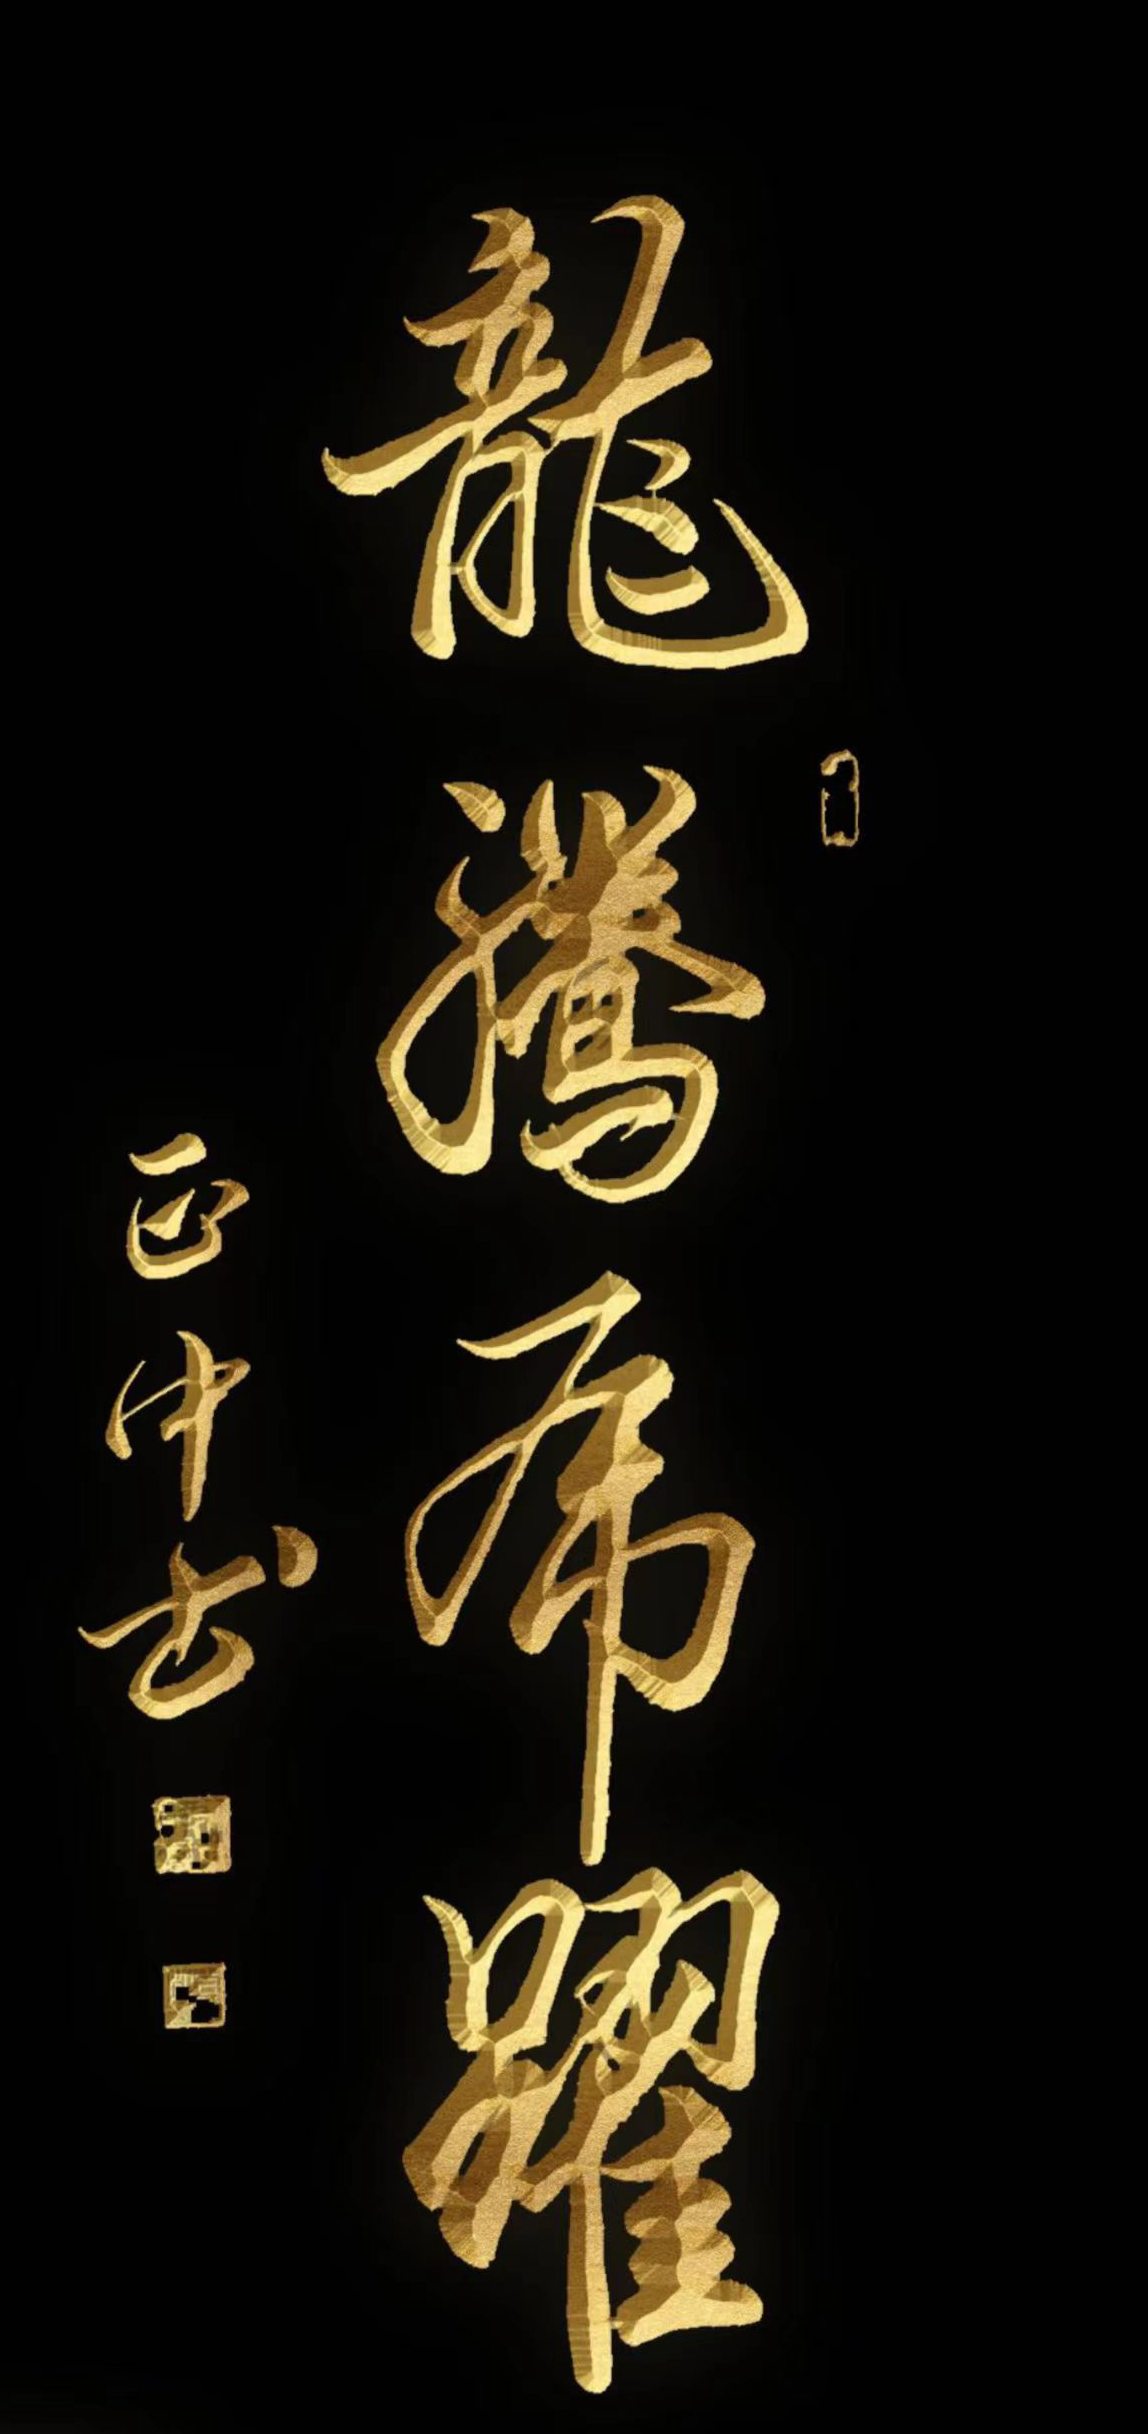 龍騰虎躍
正中书